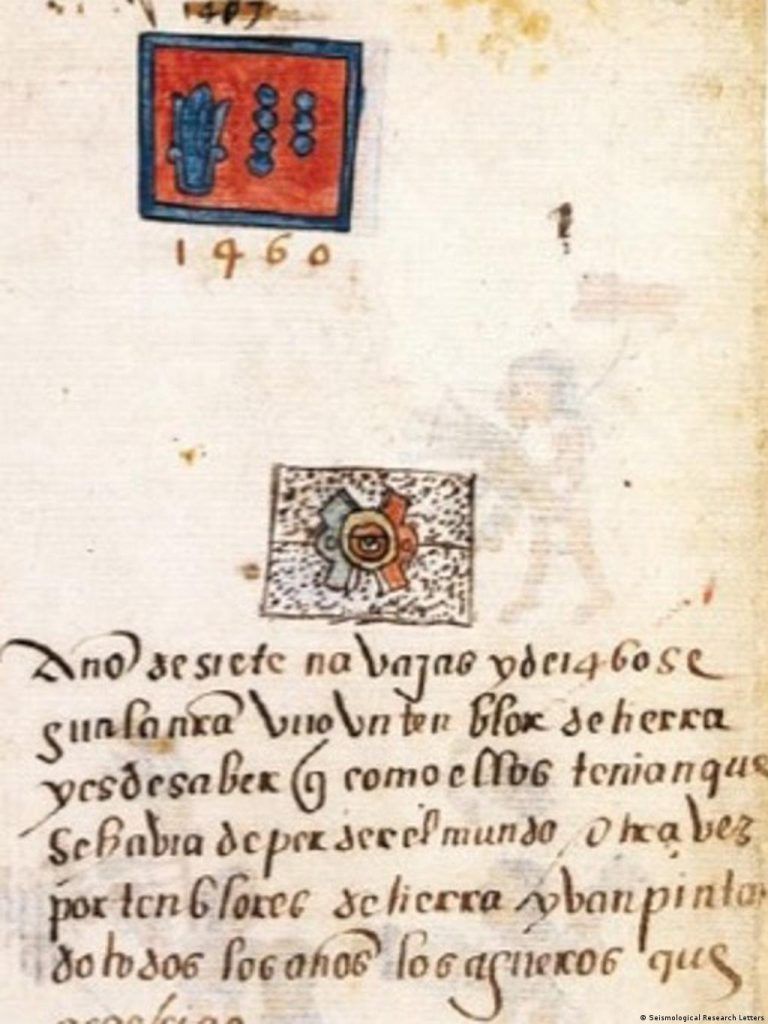 1460
Año de siete navajas y de 1460 se
gun la nra vuo vn ten blor de tierra
y es de saber q como ellos tenian que
se habia de perder el mundo otra vez
por tenblores de tierra y van pintan
do todos los años los agueros que
© Seismological Research Letters